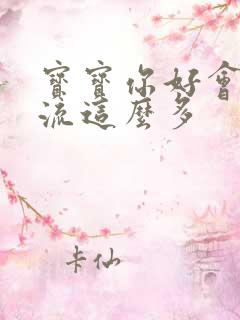 寶寶你好會
流這麼多
卡仙